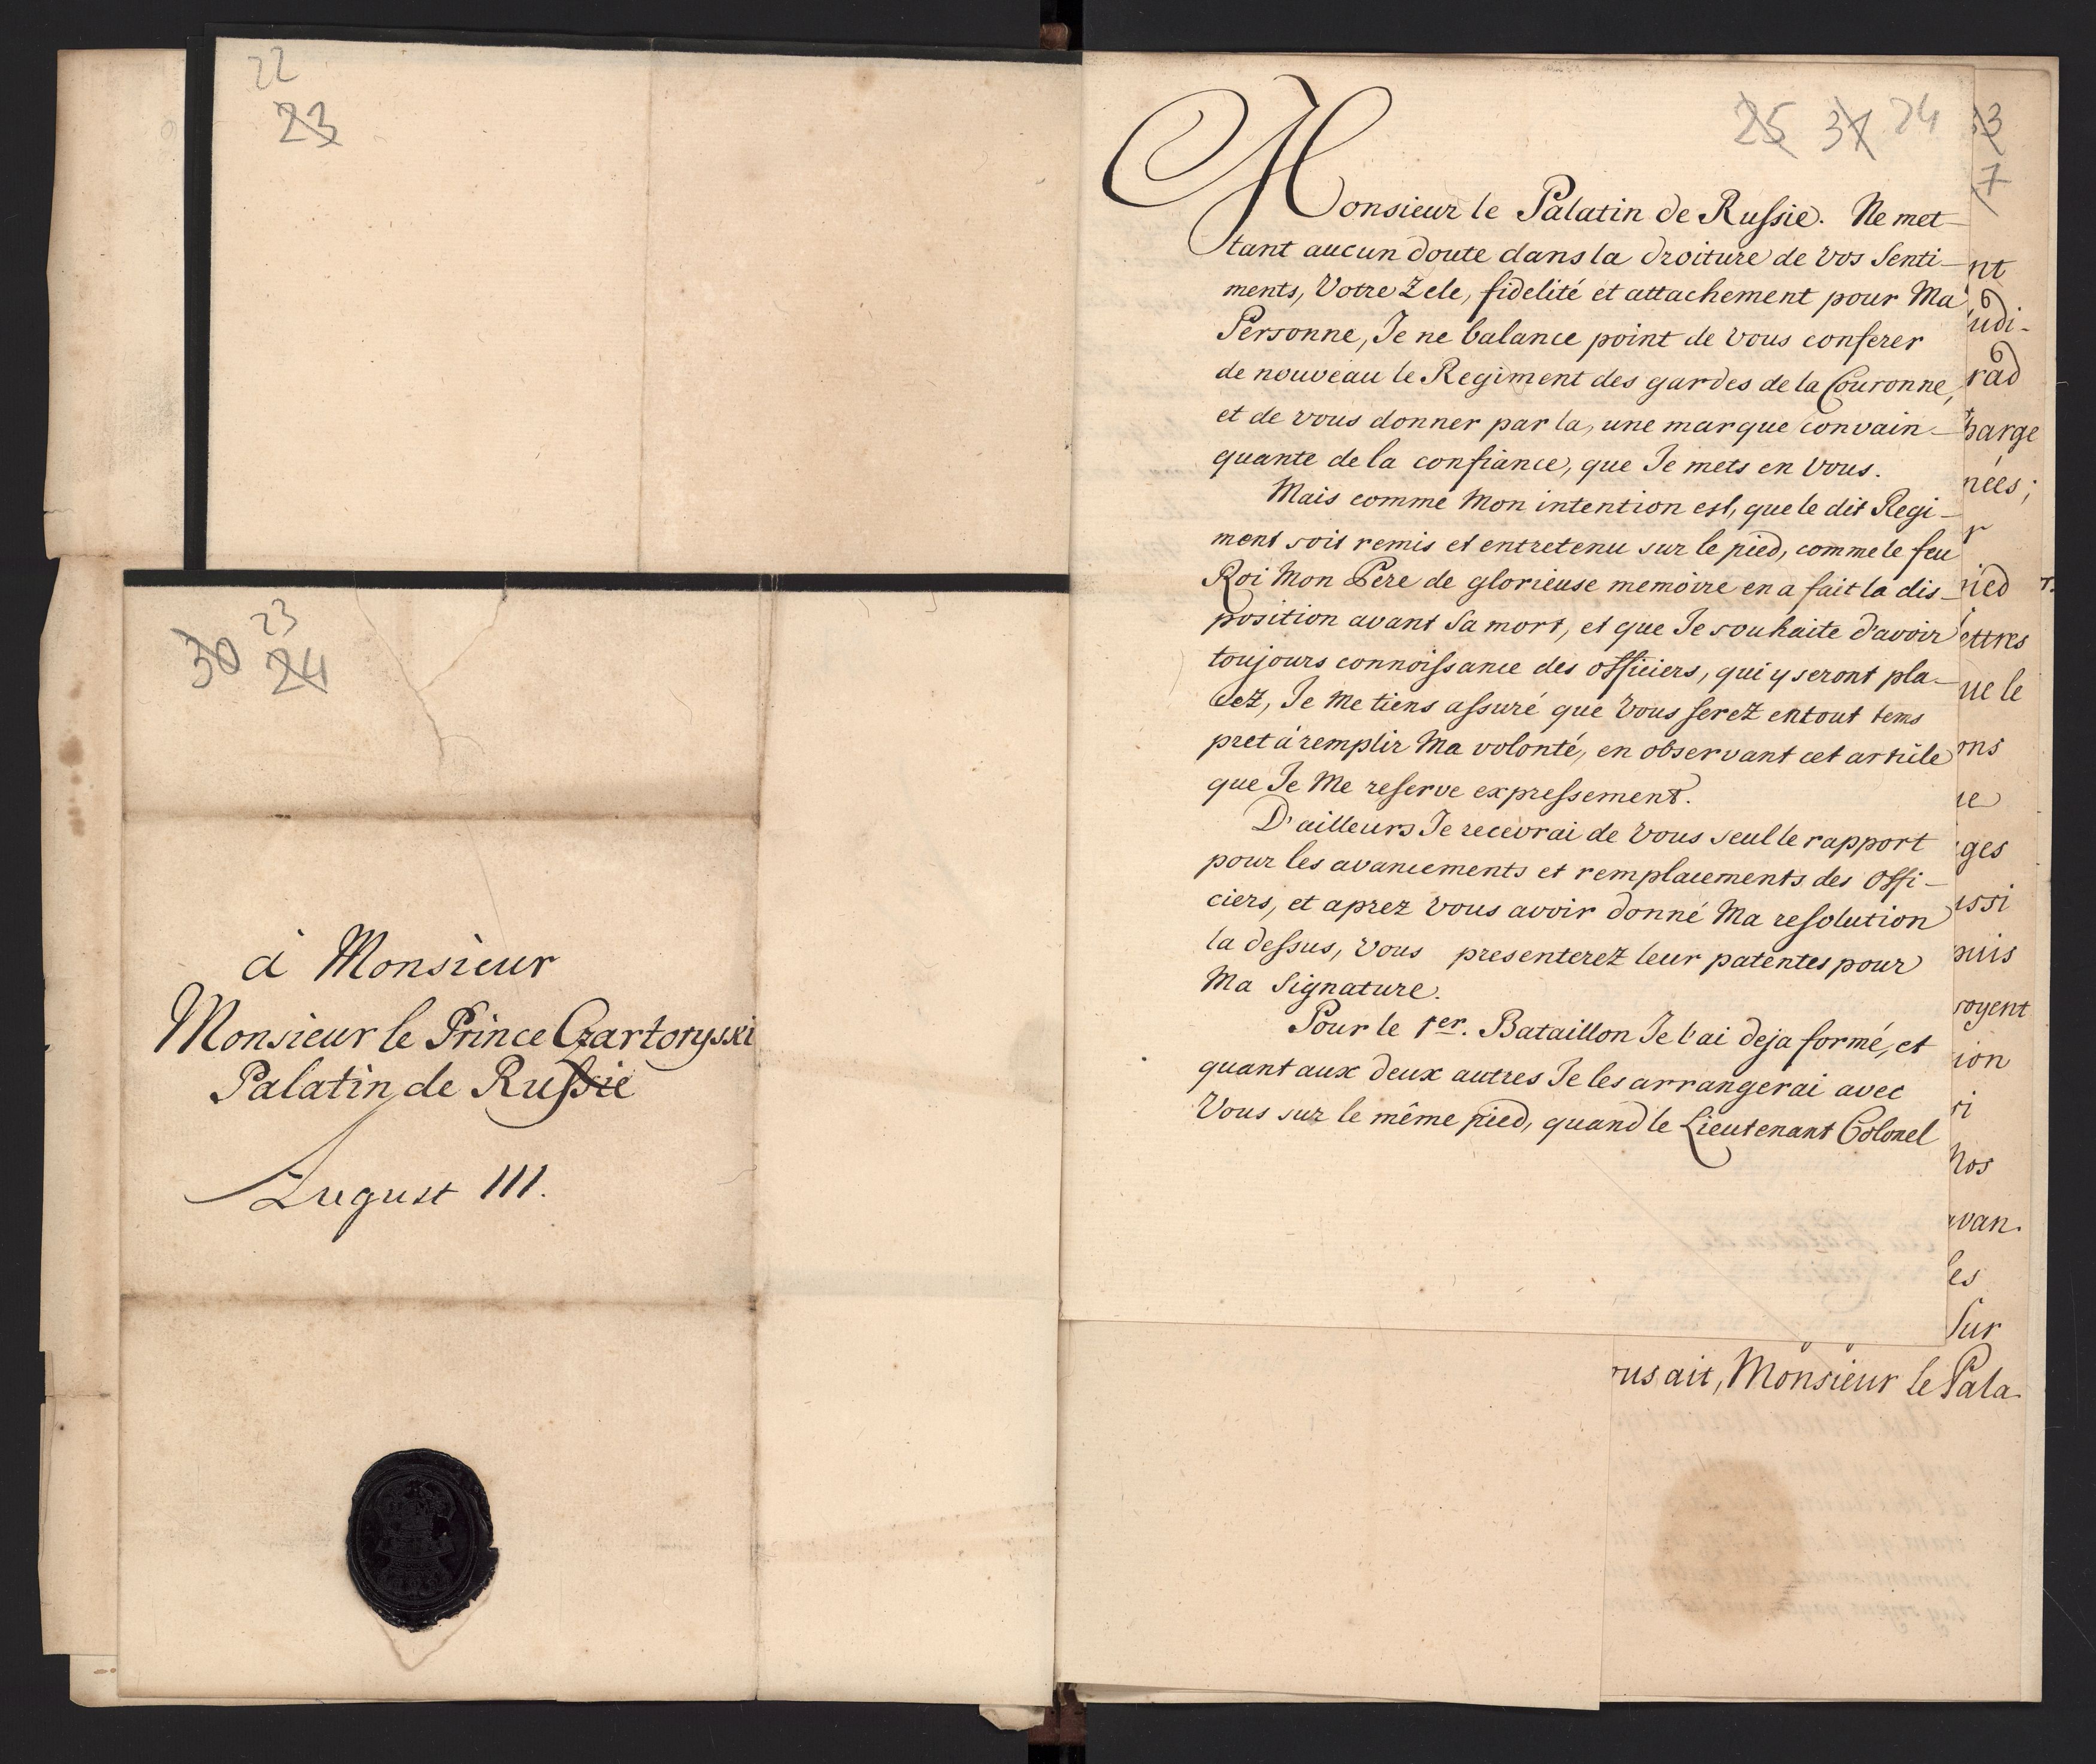 22
23
30 23
24
à Monsieur
Monsieur le Prince Czartoryski
Palatin de Russie
August III.
25 37 24
Monsieur le Palatin de Russie. Ne met-
tant aucun doute dans la droiture de vos Senti-
ments, Votre Zele, fidelité et attachement pour Ma
Personne, Je ne balance point de vous conferer
de nouveau le Regiment des gardes de la Couronne,
et de vous donner par la, une marque convain-
quante de la confiance, que Je mets en Vous.
Mais comme Mon intention est, que le dit Regi-
ment soit remis et entretenu sur le pied, comme le feu
Roi Mon Pere de glorieuse memoire en a fait la dis-
position avant Sa mort, et que Je souhaite d'avoir
toujours connoissance des officiers, qui y seront pla-
cez, Je Me tiens assuré que Vous serez en tout tems
pret à remplir Ma volonté, en observant cet article
que Je Me reserve expressement.
D'ailleurs Je recevrai de Vous seul le rapport
pour les avancements et remplacements des Offi-
ciers, et aprez Vous avoir donné Ma resolution
la dessus, Vous presenterez leur patentes pour
Ma Signature.
Pour le 1er. Bataillon Je l'ai deja formé, et
quant aux deux autres Je les arrangerai avec
Vous sur le même pied, quand le Lieutenant Colonel
33
7
nt
udi-
rad
harge
nées;
r
pied
ettres
ue le
ons
ue
ges
ussi
puis
soyent
ion
si
Nos
avan.
les
Sur
ous ait, Monsieur le Pala-